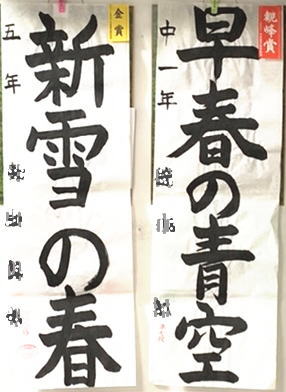 親峰賞
早春の青空
中一年
金賞
新雪の春
五年